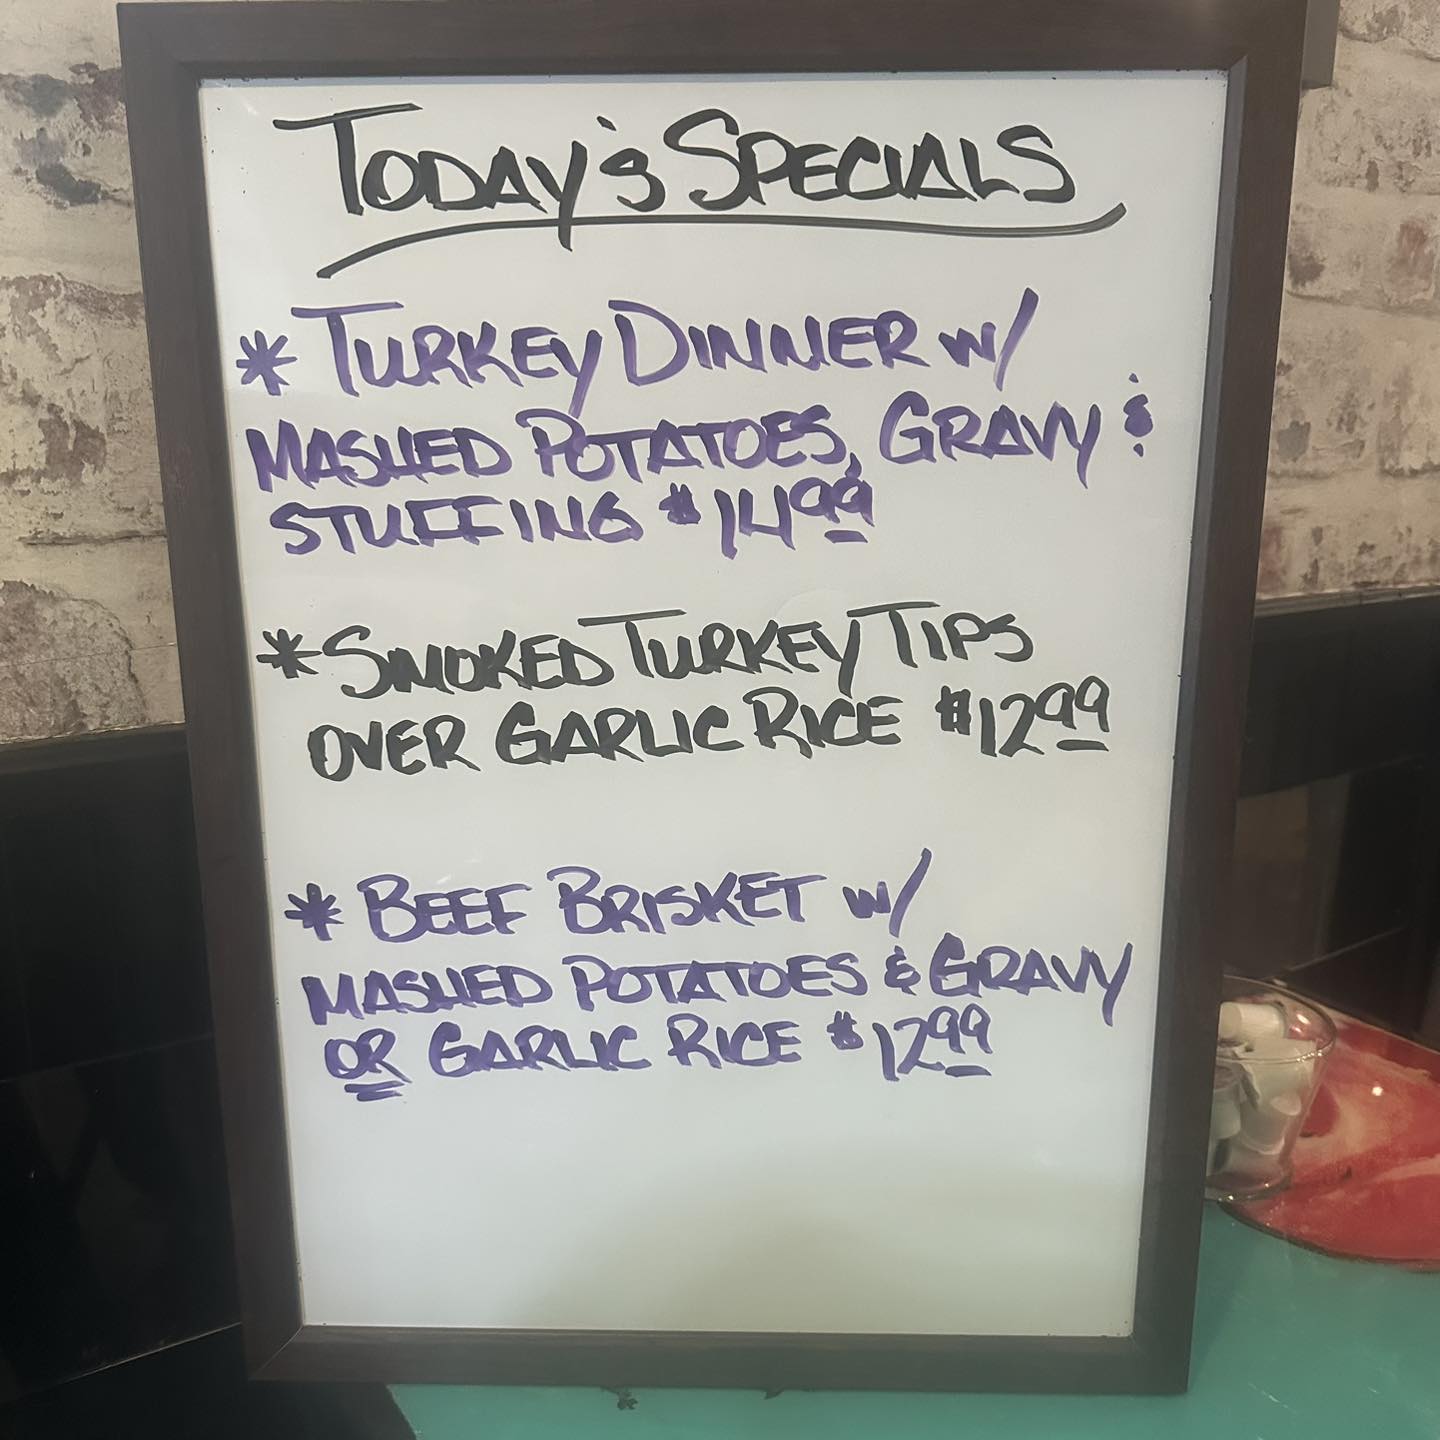 TODAY'S SPECIALS
* TURKEY DINNER W/
MASHED POTATOES, GRAVY &
STUFFING $14.99
* SMOKED TURKEY TIPS
OVER GARLIC RICE $12.99
* BEEF BRISKET W/
MASHED POTATOES & GRAVY
OR GARLIC RICE $12.99